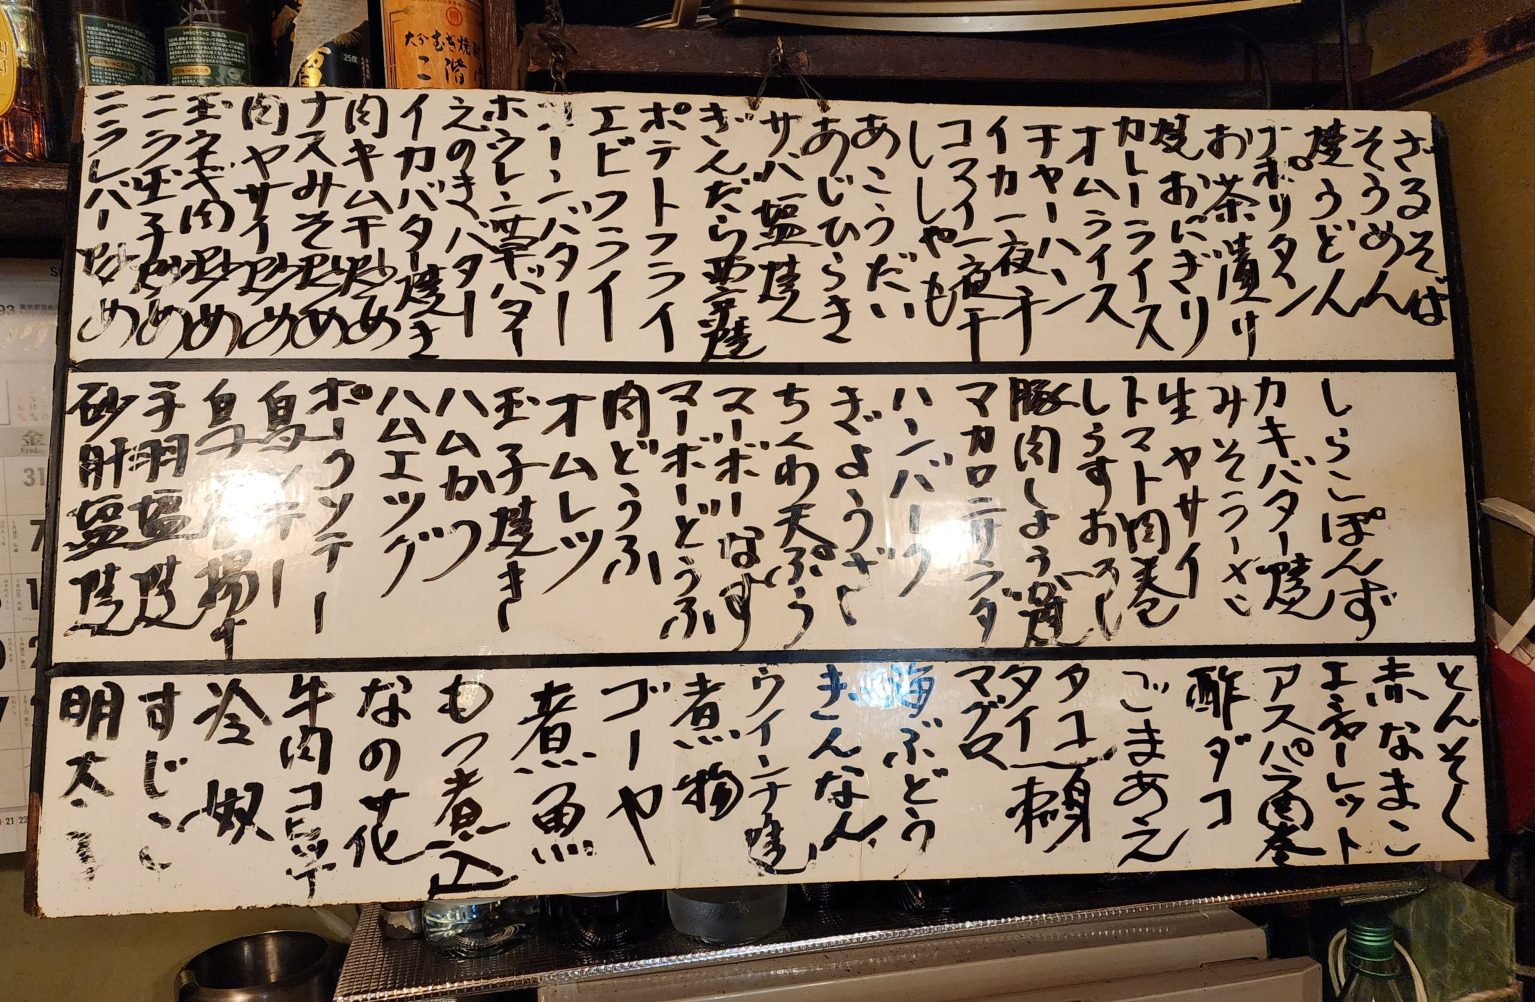 ざるそば
そうめん
焼うどん
ナポリタン
お茶漬け
焼おにぎり
カレーライス
オムライス
チャーハン
イカ一夜干
コマイ一夜干
ししゃも
あこうだい
あじひらき
サバ塩焼
ぎんだら西京焼
ポテトフライ
エビフライ
コーンバター
ホウレン草バター
えのきバター
イカバター焼き
肉キムチ炒め
ナスみそ炒め
肉ヤサイ炒め
玉ネギ肉炒め
ニラ玉子炒め
ニラレバー炒め
しらこぽんず
カキバター焼
みそラーメン
生ヤサイ
トマト肉巻
しらすおろし
豚肉しょうが焼
マカロニサラダ
ハンバーグ
ぎょうざ
ちくわ天ぷら
マーボーなす
マーボーどうふ
肉どうふ
オムレツ
玉子焼き
ハムかつ
ハムエッグ
ポークソテー
鳥ソテー
鳥唐揚げ
手羽塩焼
砂肝塩焼
とんそく
赤なまこ
エシャーレット
アスパラ肉巻
酢ダコ
ごまあえ
タコ刺身
タイ刺身
マグロ
海ぶどう
ぎんなん
ウインナ焼
煮物
ゴーヤ
煮魚
もつ煮込
なの花
牛肉コロッケ
冷奴
すじこ
明太子
大分むぎ焼酎
二階
25度
金
Friday
31
7
21 22